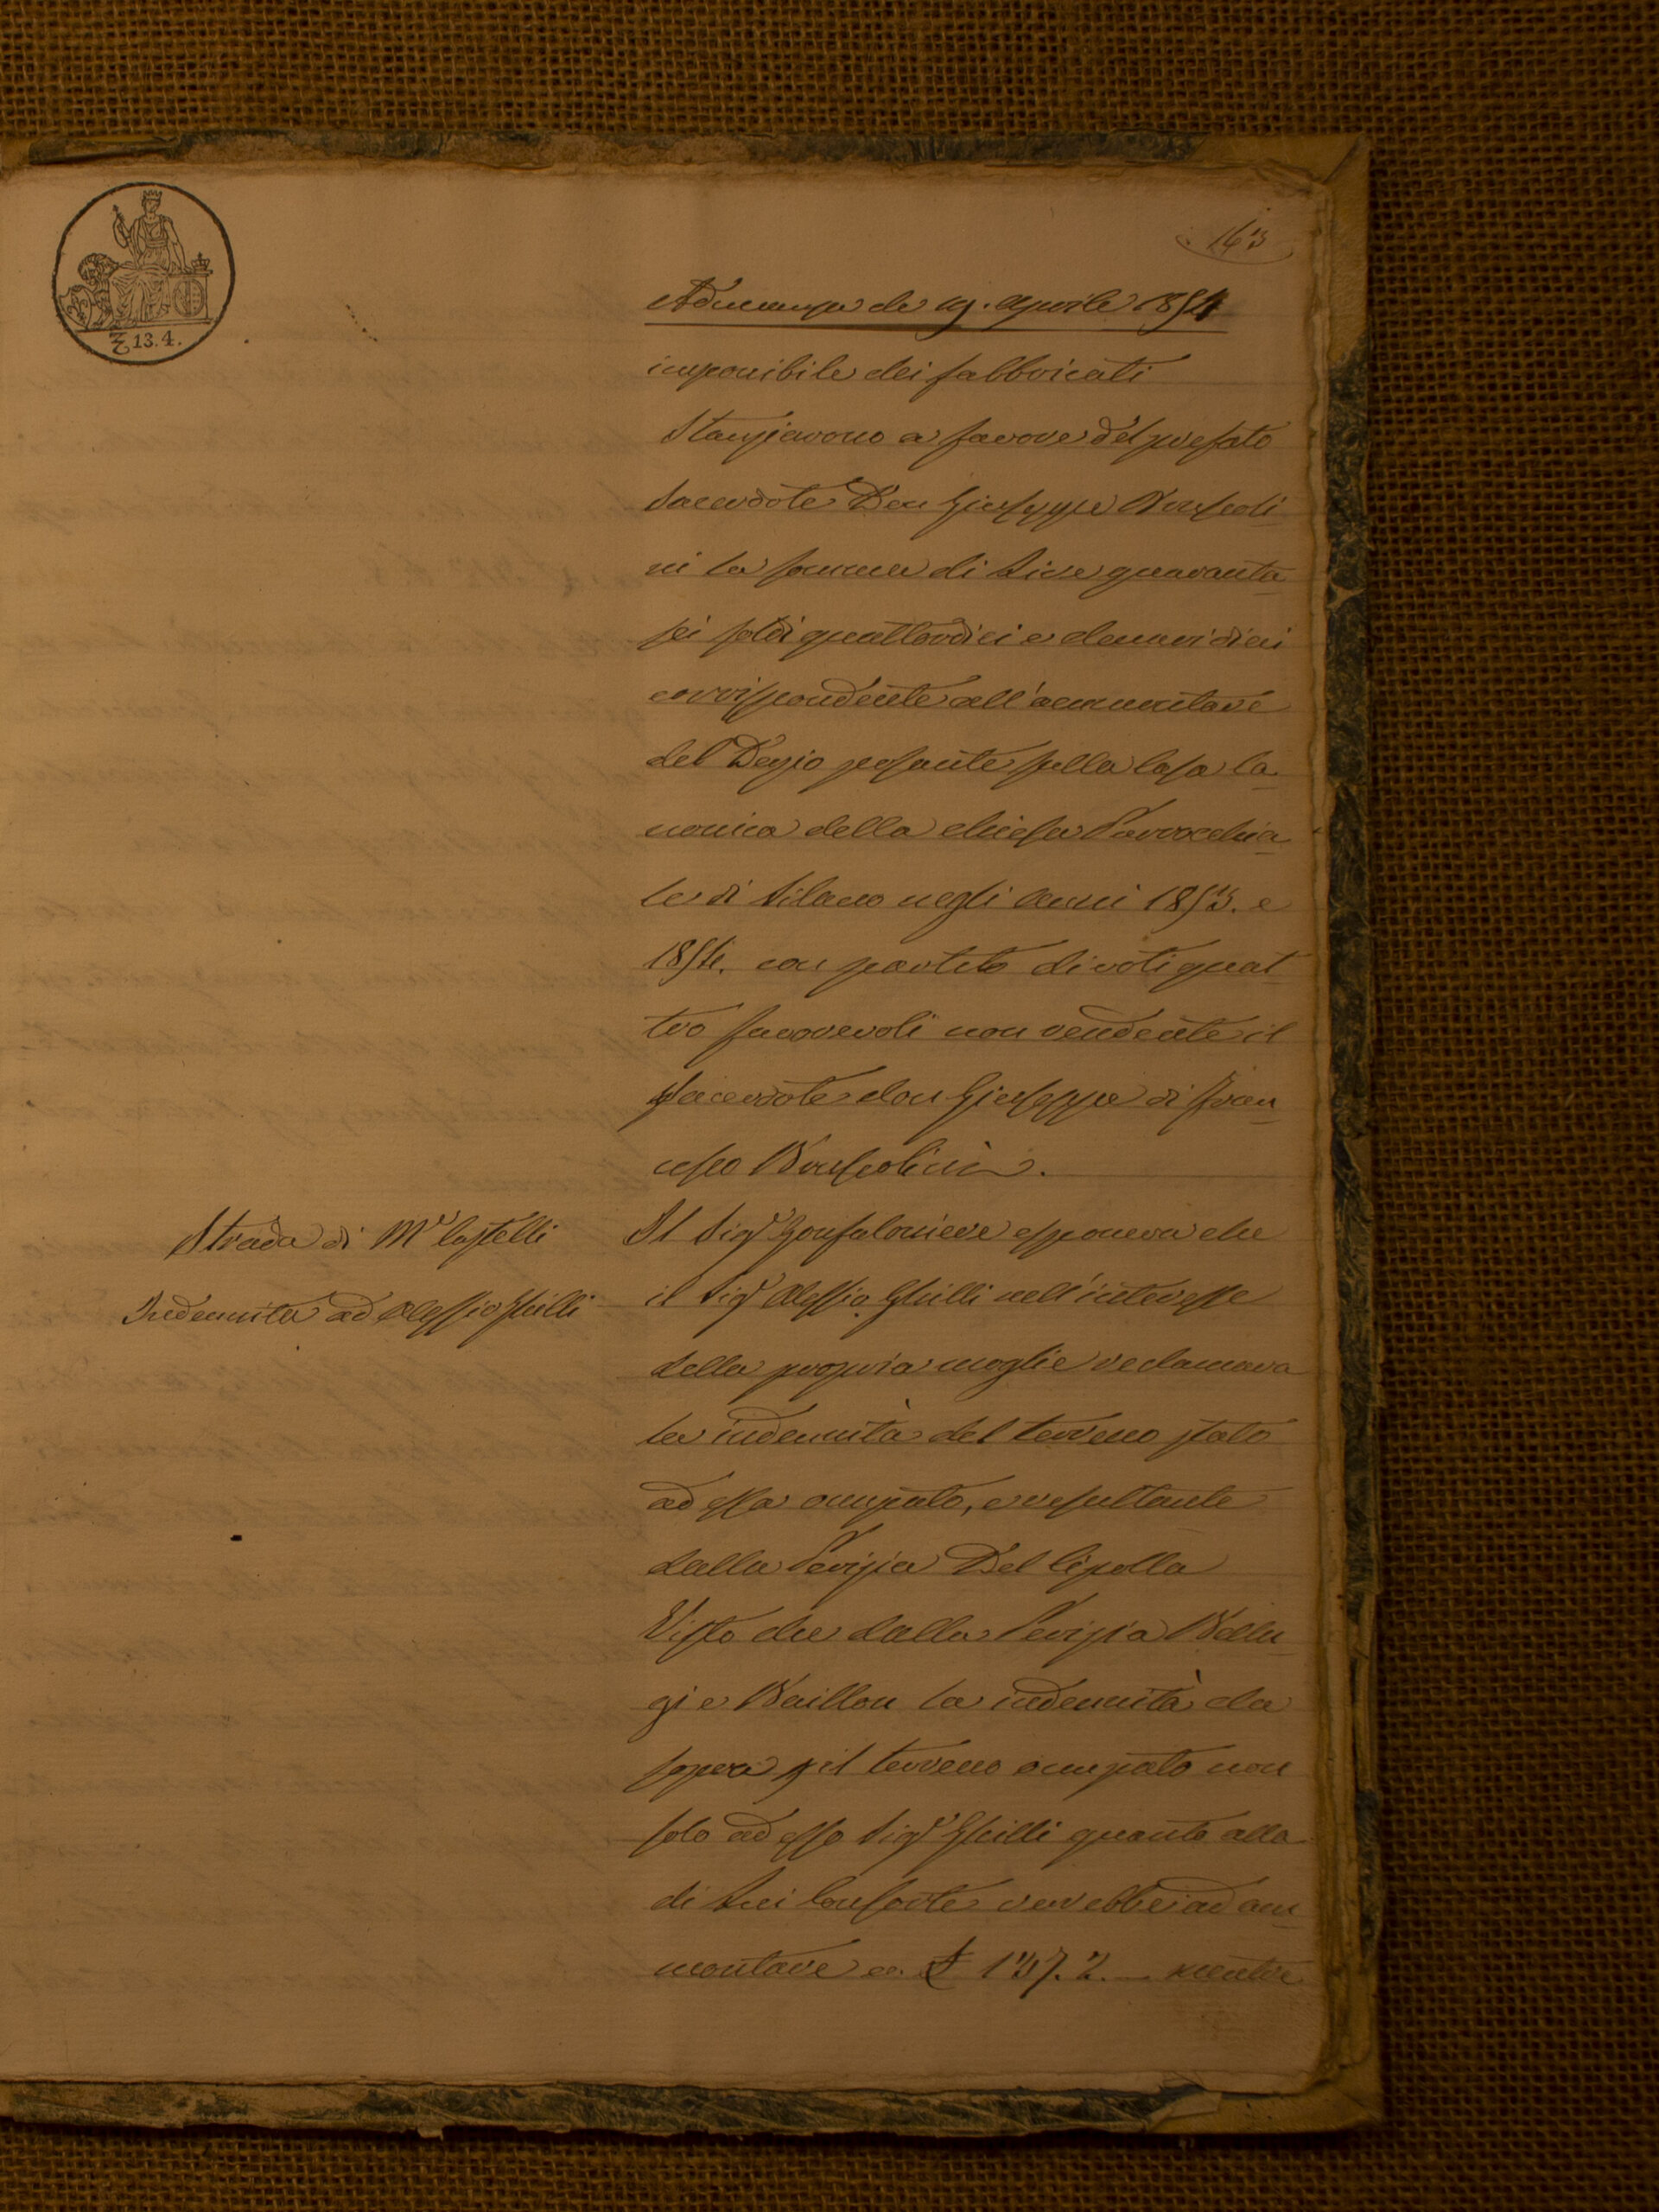 13.4.
163
Adunanza de 19. Aprile 1854
imponibile dei fabbricati
Stanziarono a favore del prefato
Sacerdote Don Giuseppe Bonfcoli
ni la somma di Lire quaranta
sei soldi quattordici e denari dieci
corrispondente all'ammontare
del Dazio posante sulla Casa Ca
nonica della chiesa Parrocchia
le di Silano negli anni 1853. e
1854. con partito di voti quat
tro favorevoli non rendente il
Sacerdote don Giuseppe di Fran
cesco
Strada di Mte Castelli
Indennita ad Alessio Ghilli
Il Sigr Gonfaloniere esponeva che
il Sigr Alessio Ghilli nell'interesse
della propria moglie reclamava
la indennità del terreno stato
ad essa occupato, e resultante
dalla Perizia Del Cipolla
Visto che dalla Perizia Bellu
gi e Baillou la indennità da
sopra p il terreno occupato non
solo ad esso Sigr Ghilli quanto alla
di Lui Consorte verrebbe ad am
montare a £ 137. 2. — mentre